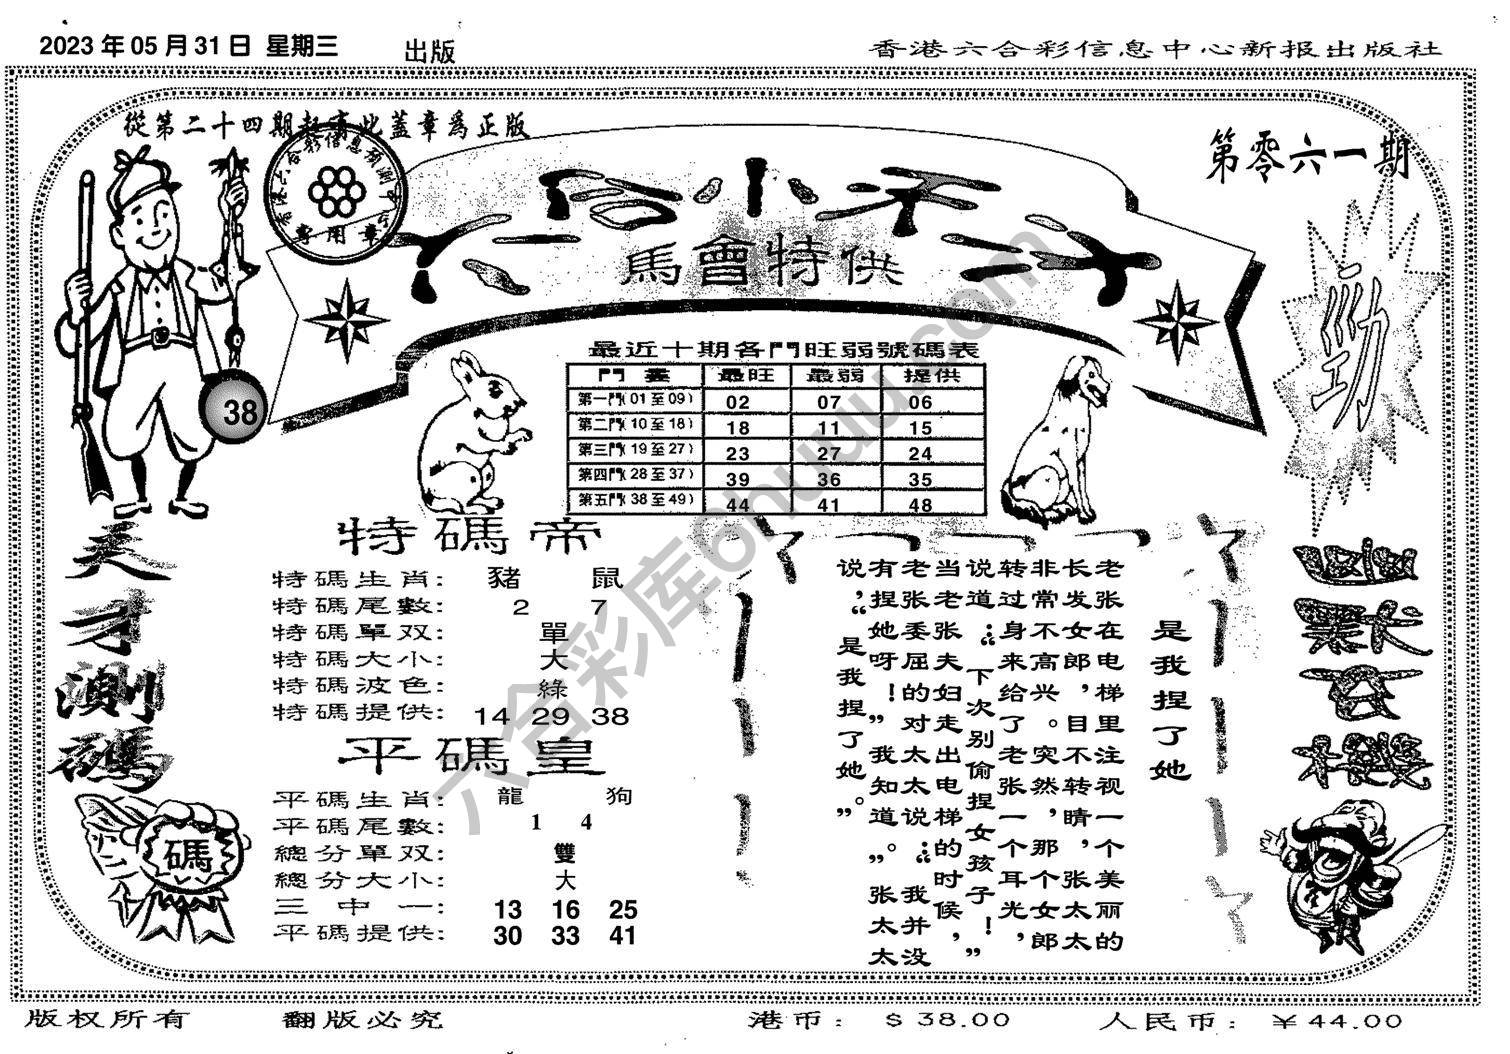 2023 年 05 月 31 日 星期三
出版
香港六合彩信息中心新报出版社
從第二十四期起有此蓋章爲正版
第零六一期
專用章
馬會特供
勁
38
最近十期各門旺弱號碼表
最旺 最弱 提供
第一門(01 至 09) 02 07 06
第二門(10 至 18) 18 11 15
第三門(19 至 27) 23 27 24
第四門(28 至 37) 39 36 35
第五門(38 至 49) 44 41 48
天才測碼
碼
特碼帝
特碼生肖: 豬 鼠
特碼尾數: 2 7
特碼單双: 單
特碼大小: 大
特碼波色: 綠
特碼提供: 14 29 38
平碼皇
平碼生肖: 龍 狗
平碼尾數: 1 4
總分單双: 雙
總分大小: 大
三中一: 13 16 25
平碼提供: 30 33 41
是我捏了她
老张在电梯里注视一个美丽的
长发女郎,目不转睛,张太太
非常不高兴。突然,那个女郎
转过身来给了老张一个耳光,
说道:“下次别偷捏女孩子!”
当老张夫妇走出电梯的时候,
老张委屈的对太太说:“我并没
有捏她呀!”“我知道”。张太太
说,“是我捏了她。”
六合彩库6huuu.com
版权所有
翻版必究
港币: $ 38.00
人民币: ¥ 44.00